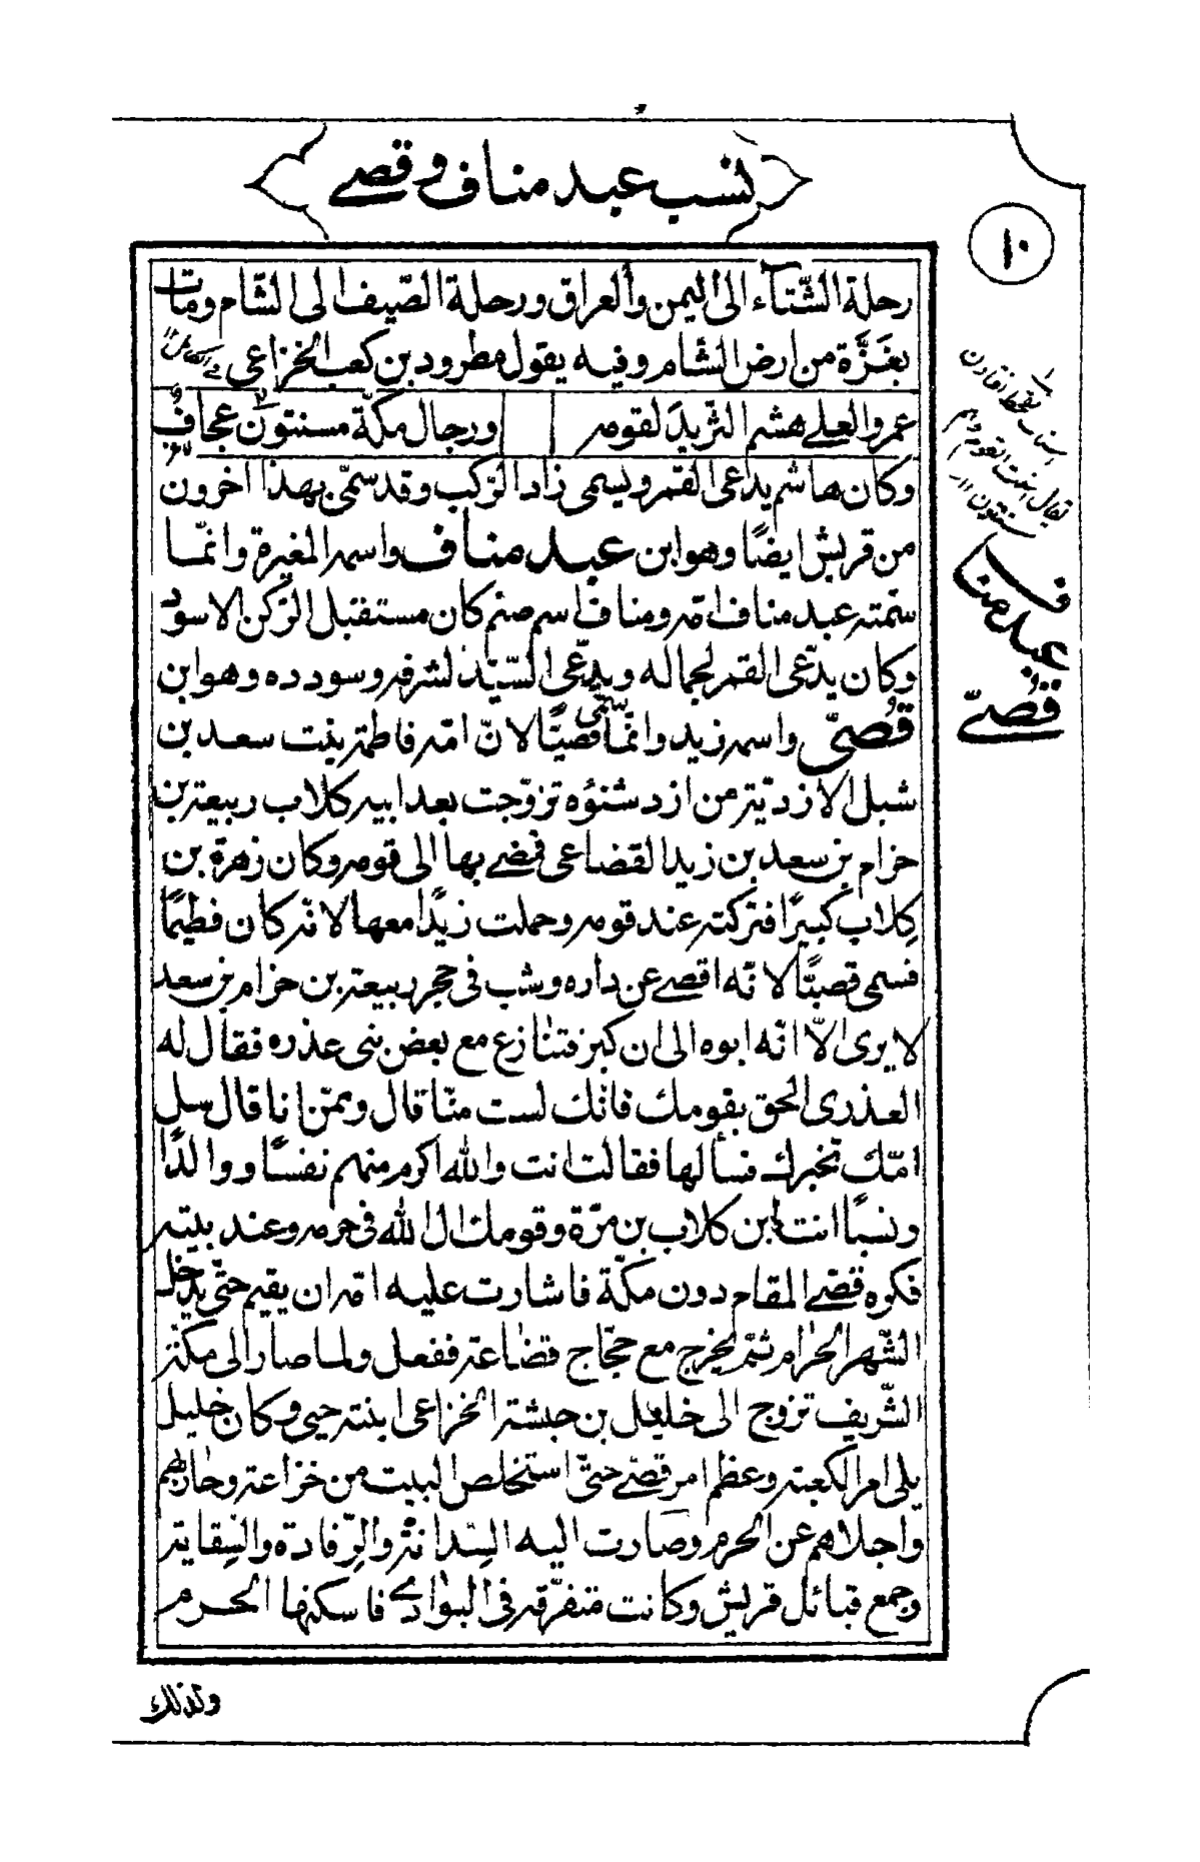 نسب عبد مناف وقصے
١٠
رحلة الشّتآء الى اليمن والعراق ورحلة الصّيف الى الشّام ومات
بغَزَّة من ارض الشام وفيه يقول مطرود بن كعب الخزاعى
عمرو العلے هشم الثريدَ لقومه ورجال مكّة مسنتونَ عجافُ
وكان هاشم يدعى القمر ويسمى زاد الرّكب وقد سمّى بهذا آخرون
من قريش ايضًا وهو ابن عبد مناف واسمه المغيرة وانّما
سمّته عبد مناف امّه ومناف اسم صنم كان مستقبل الرّكن الاسود
وكان يدّعى القمر لجماله ويدّعى السّيّد لشرفه وسودده وهو ابن
قُصىّ واسمه زيد وانّما سمّى قصيًّا لانّ امّه فاطمة بنت سعد بن
شبل الازديّة من ازد شنؤه تزوّجت بعد ابيه كلاب ربيعة بن
حزام بن سعد بن زيد القضاعى فمضے بها الى قومه وكان زهرة بن
كِلاب كبيرًا فتركته عند قومه وحملت زيدًا معها لانّه كان فطيمًا
فسمى قصيًّا لانّه اقصے عن داره وشب فى حجر ربيعة بن حزام بن سعد
لا يرى الّا انّه ابوه الى ان كبر فتنازع مع بعض بنى عذره فقال له
العذرى الحق بقومك فانّك لست منّا قال وممّن انا قال سل
امّك تخبرك فسألها فقالت انت والله اكرم منهم نفسًا ووالدًا
ونسبًا انت ابن كلاب بن مرّة وقومك ال الله فى حرمه وعند بيته
فكره قصّے المقام دون مكّة فاشارت عليه امّه ان يقيم حتّى يدخل
الشّهر الحرام ثمّ يخرج مع حجّاج قضاعة ففعل ولما صار الى مكّة
الشّريف تزوج الى خليل بن حبشة الخزاعى ابنته حبى وكان خليل
يلى امر الكعبة وعظم امر قصّے حتّى استخلص البيت من خزاعة وحاربهم
واجلاهم عن الحرم وصارت اليه السِّدانة والرِّفادة والسِّقاية
وجمع قبائل قريش وكانت متفرّقة فى البوادے فاسكنها الحرم
ولذلك
عبد مناف
قُصىّ